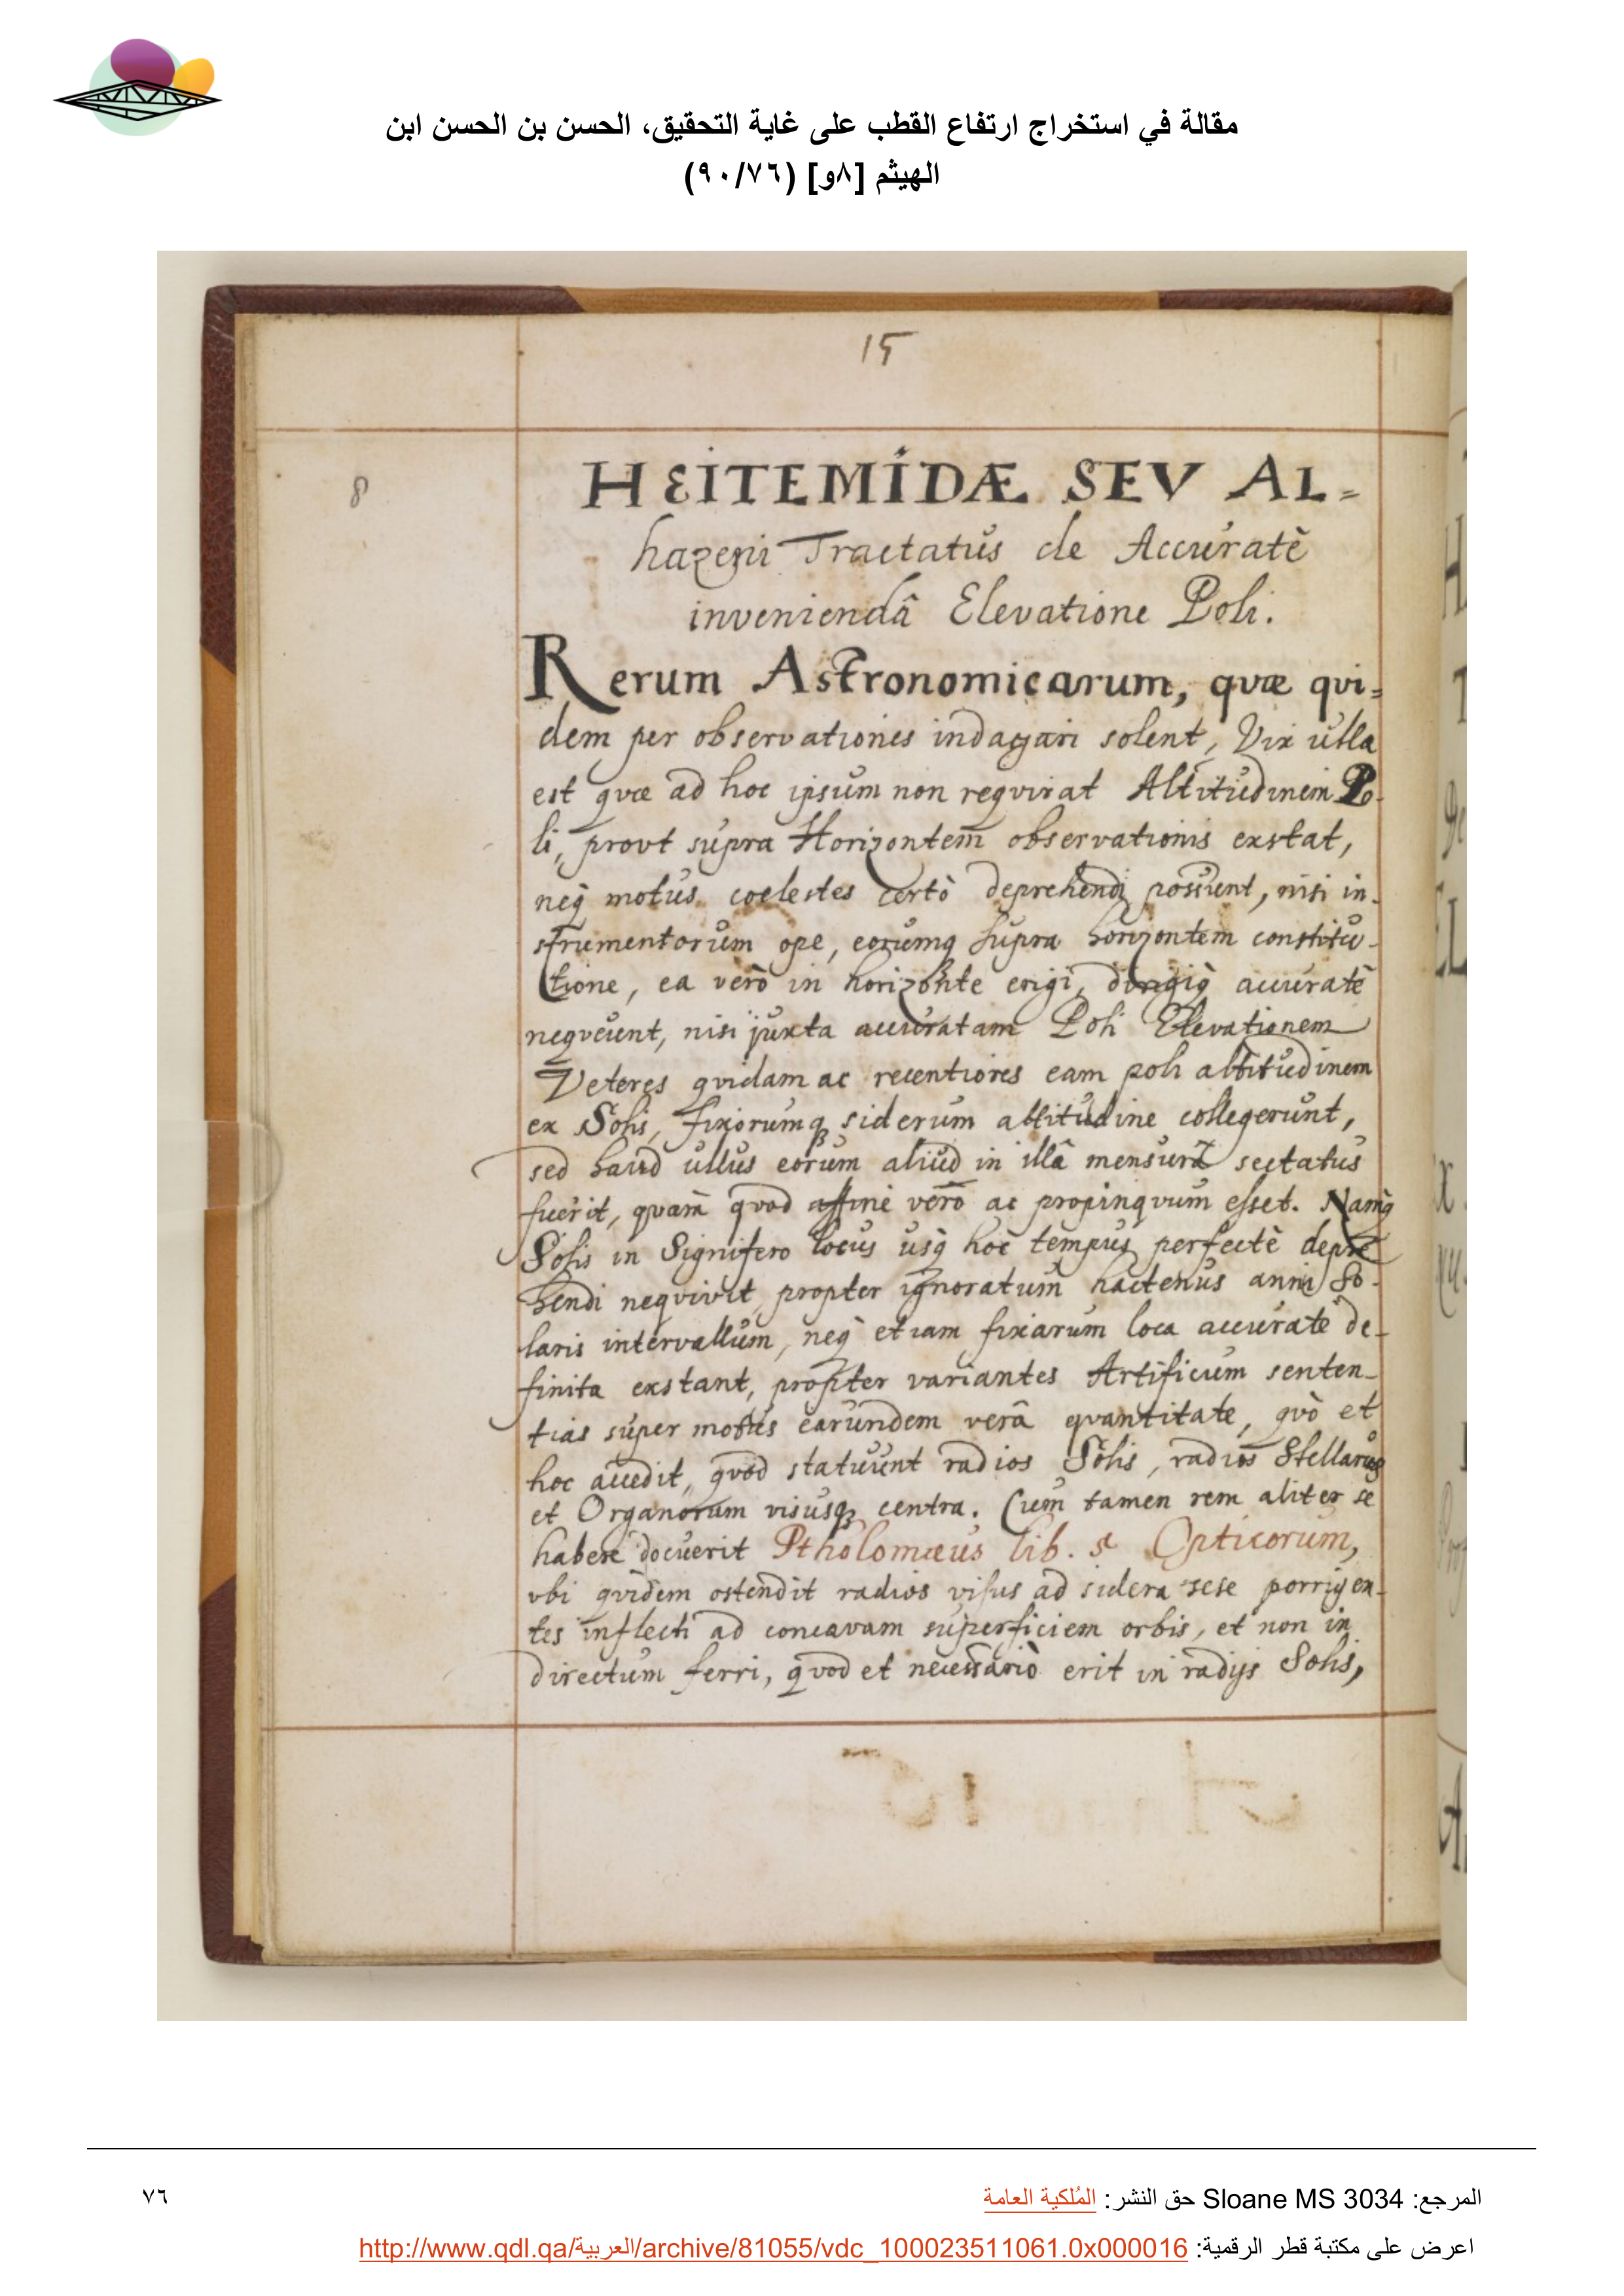 مقالة في استخراج ارتفاع القطب على غاية التحقيق، الحسن بن الحسن ابن
الهيثم [٨و] (٩٠/٧٦)
15
8
HEITEMIDÆ SEV AL=
hazeni Tractatus de Accuratè
inveniendâ Elevatione Poli.
Rerum Astronomicarum, quæ qui=
dem per observationes indagari solent, Vix ulla
est quæ ad hoc ipsum non requirat Altitudinem Po-
li, prout supra Horizontem observationis exstat,
neq̀ motus coelestes certò deprehendi possunt, nisi in-
strumentorum ope, eorumq supra horizontem constitu-
tione, ea verò in horizonte erigi, dirigiq̀ accuratè
nequeunt, nisi juxta accuratam Poli Elevationem
Veteres quidam ac recentiores eam poli altitudinem
ex Solis, fixorumq siderum altitudine collegerunt,
sed haud ullus eorum aliud in illâ mensurâ sectatus
fuerit, quam̀ quod affine verò ac propinquum esset. Namq̀
Solis in Signifero locus usq̀ hoc tempus perfectè depre
hendi nequivit, propter ignoratum hactenus anni So-
laris intervallum, neq̀ etiam fixarum loca accuratè de-
finita exstant, propter variantes Artificum senten-
tias super motus earundem verâ quantitate, quò et
hoc accedit, quod statuunt radios Solis, radios Stellarũ
et Organorum visusq centra. Cum tamen rem aliter se
habere docuerit Ptholomæus lib. 5 Opticorum,
ubi quidem ostendit radios visus ad sidera sese porrigen-
tes inflecti ad concavam superficiem orbis, et non in
directum ferri, quod et necessariò erit in radijs Solis,
المرجع: Sloane MS 3034 حق النشر: المُلكية العامة
٧٦
اعرض على مكتبة قطر الرقمية: http://www.qdl.qa/العربية/archive/81055/vdc_100023511061.0x000016